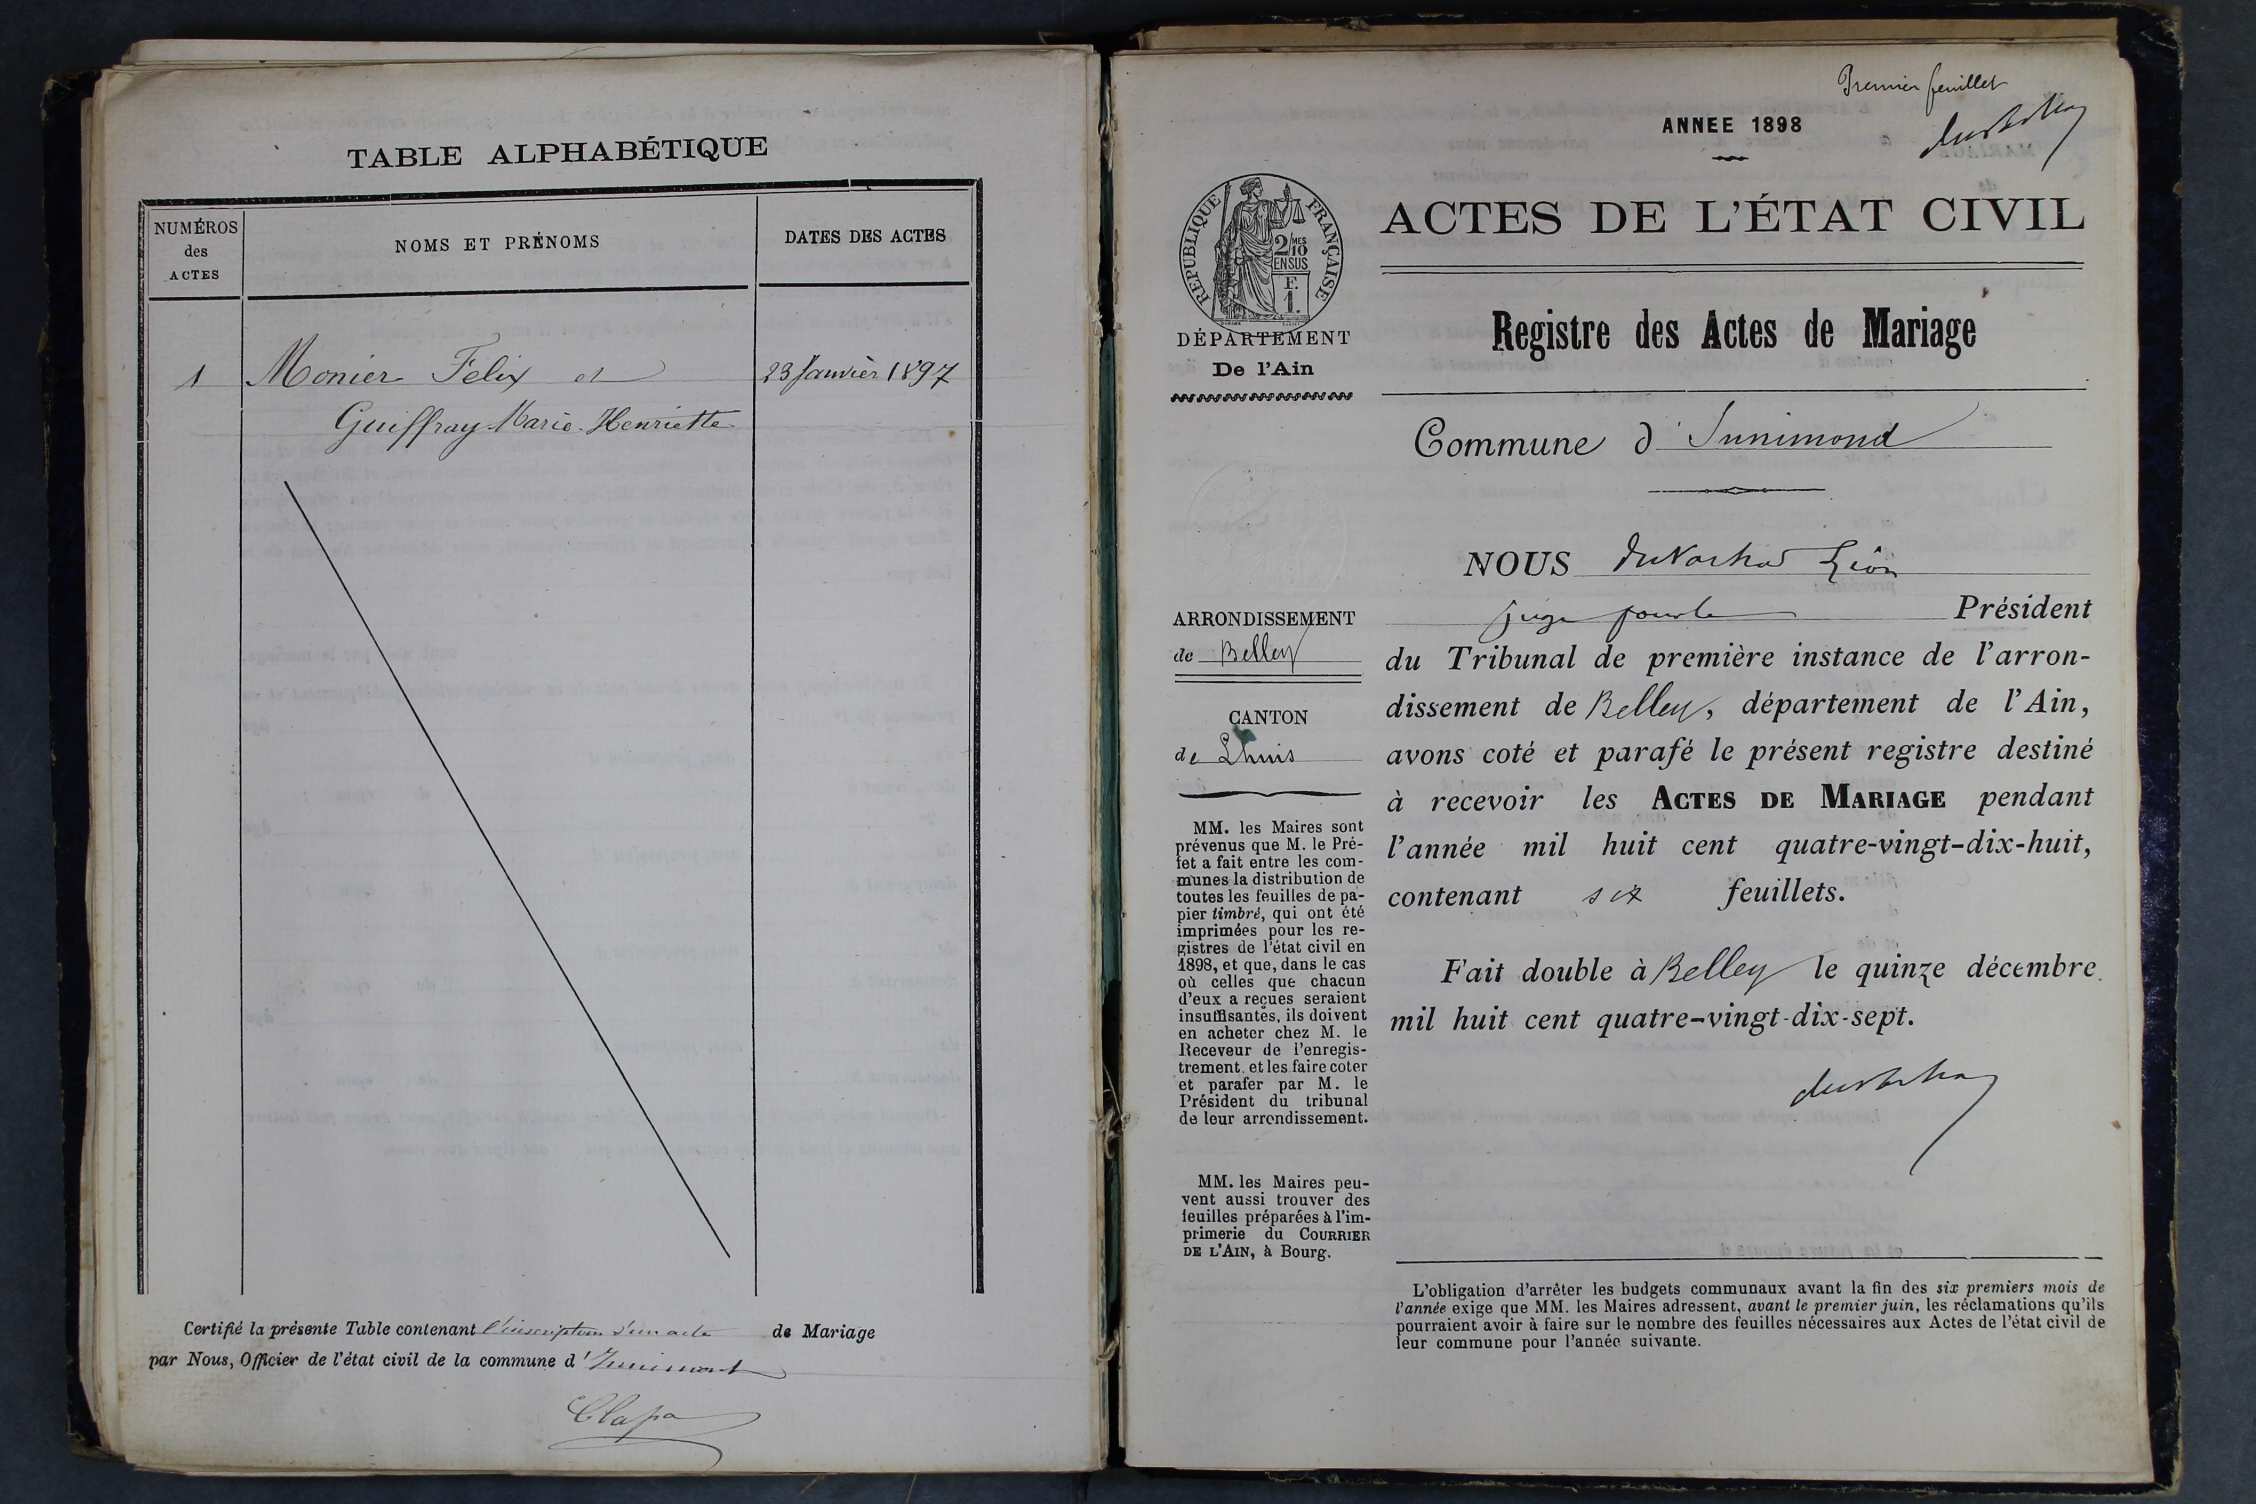 TABLE ALPHABÉTIQUE
NUMÉROS
des
ACTES
NOMS ET PRÉNOMS
DATES DES ACTES
1 Monier Felix et 23 Janvier 1897
Guiffray Marie-Henriette
Certifié la présente Table contenant l'inscription d'un acte de Mariage
par Nous, Officier de l'état civil de la commune d'Innimont
Clapa
Premier feuillet
ANNEE 1898
RÉPUBLIQUE FRANÇAISE
2/10
MES
EN SUS
F.
1.
DÉPARTEMENT
De l'Ain
ACTES DE L'ÉTAT CIVIL
Registre des Actes de Mariage
Commune d'Innimond
ARRONDISSEMENT
de Belley
CANTON
de Lhuis
MM. les Maires sont
prévenus que M. le Pré-
fet a fait entre les com-
munes la distribution de
toutes les feuilles de pa-
pier timbré, qui ont été
imprimées pour les re-
gistres de l'état civil en
1898, et que, dans le cas
où celles que chacun
d'eux a reçues seraient
insuffisantes, ils doivent
en acheter chez M. le
Receveur de l'enregis-
trement. et les faire coter
et parafer par M. le
Président du tribunal
de leur arrondissement.
MM. les Maires peu-
vent aussi trouver des
feuilles préparées à l'im-
primerie du COURRIER
DE L'AIN, à Bourg.
NOUS Léon
juge pour le Président
du Tribunal de première instance de l'arron-
dissement de Belley, département de l'Ain,
avons coté et parafé le présent registre destiné
à recevoir les ACTES DE MARIAGE pendant
l'année mil huit cent quatre-vingt-dix-huit,
contenant six feuillets.
Fait double à Belley le quinze décembre
mil huit cent quatre-vingt-dix-sept.
L'obligation d'arrêter les budgets communaux avant la fin des six premiers mois de
l'année exige que MM. les Maires adressent, avant le premier juin, les réclamations qu'ils
pourraient avoir à faire sur le nombre des feuilles nécessaires aux Actes de l'état civil de
leur commune pour l'année suivante.